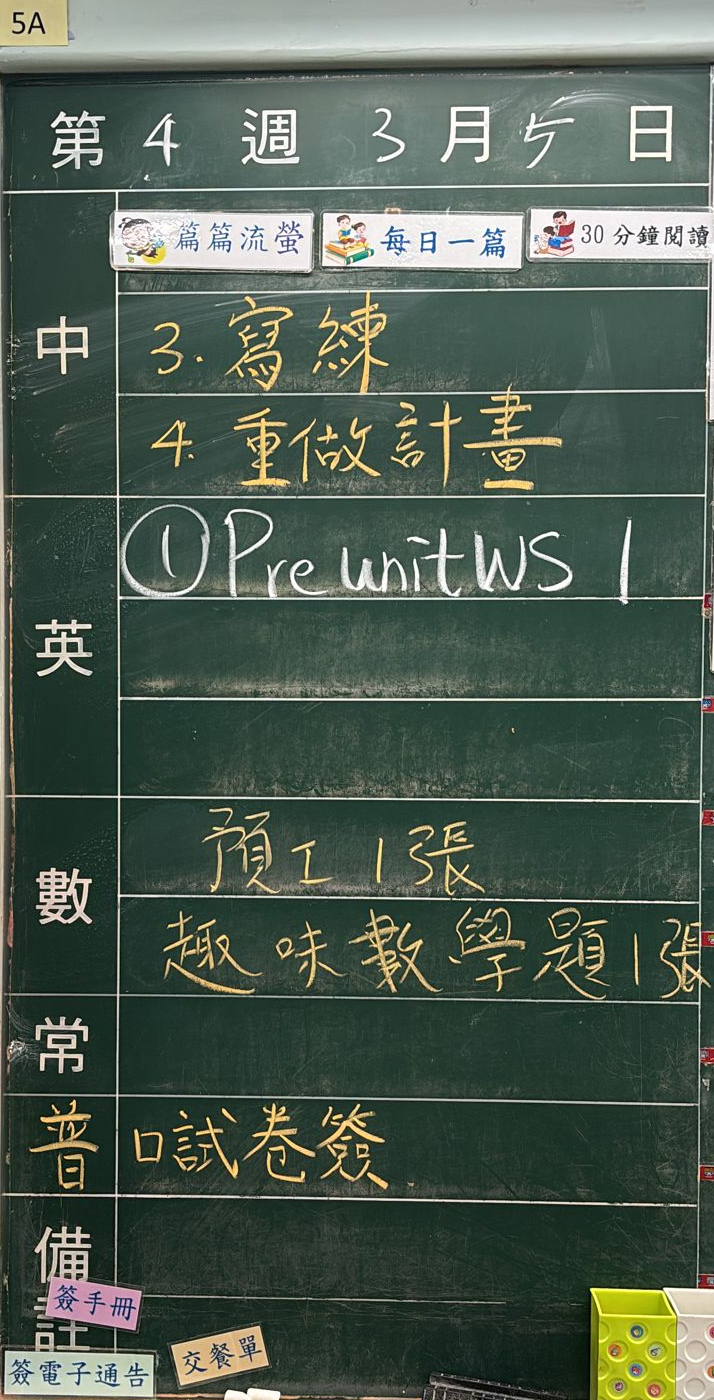 5A
第 4 週 3 月 5 日
篇篇流螢 每日一篇 30分鐘閱讀
中
3. 寫練
4. 重做計畫
英
① Pre unit WS 1
數
預工 1張
趣味數學題1張
常
普 口試卷簽
備註
簽手冊
簽電子通告 交餐單